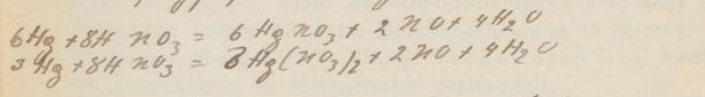 6Hg + 8H NO3 = 6 Hg NO3 + 2 NO + 4H2O
3 Hg + 8H NO3 = 3 Hg(NO3)2 + 2 NO + 4H2O